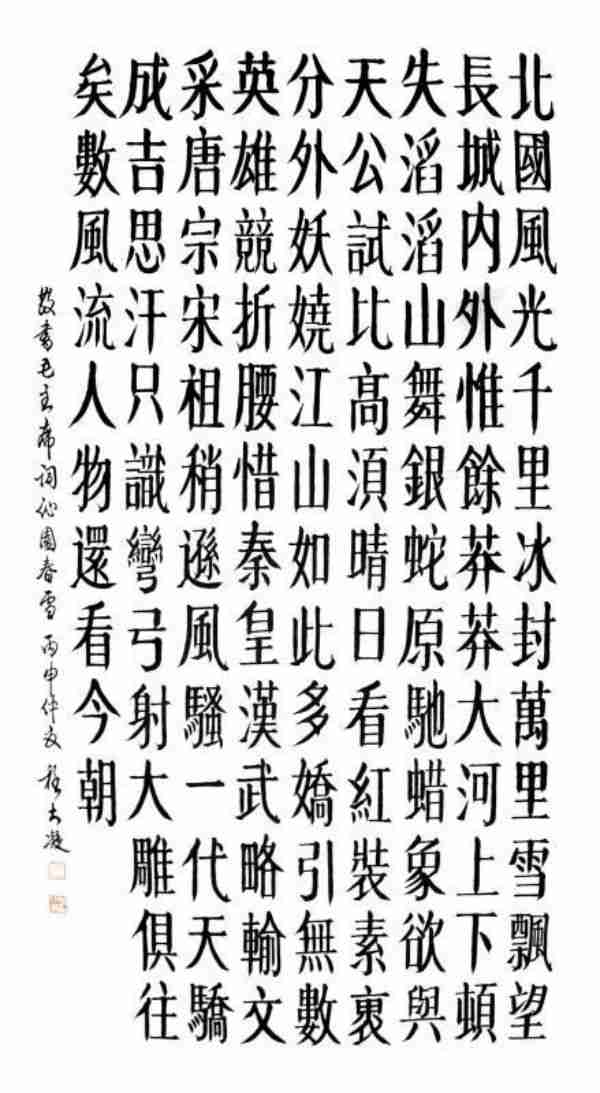 北國風光千里冰封萬里雪飄望
長城内外惟餘莽莽大河上下頓
失滔滔山舞銀蛇原馳蜡象欲與
天公試比高湏晴日看紅裝素裹
分外妖嬈江山如此多嬌引無數
英雄競折腰惜秦皇漢武略輸文
采唐宗宋祖稍遜風騷一代天驕
成吉思汗只識彎弓射大雕俱往
矣數風流人物還看今朝
敬書毛主席詞沁園春雪 丙申仲夏